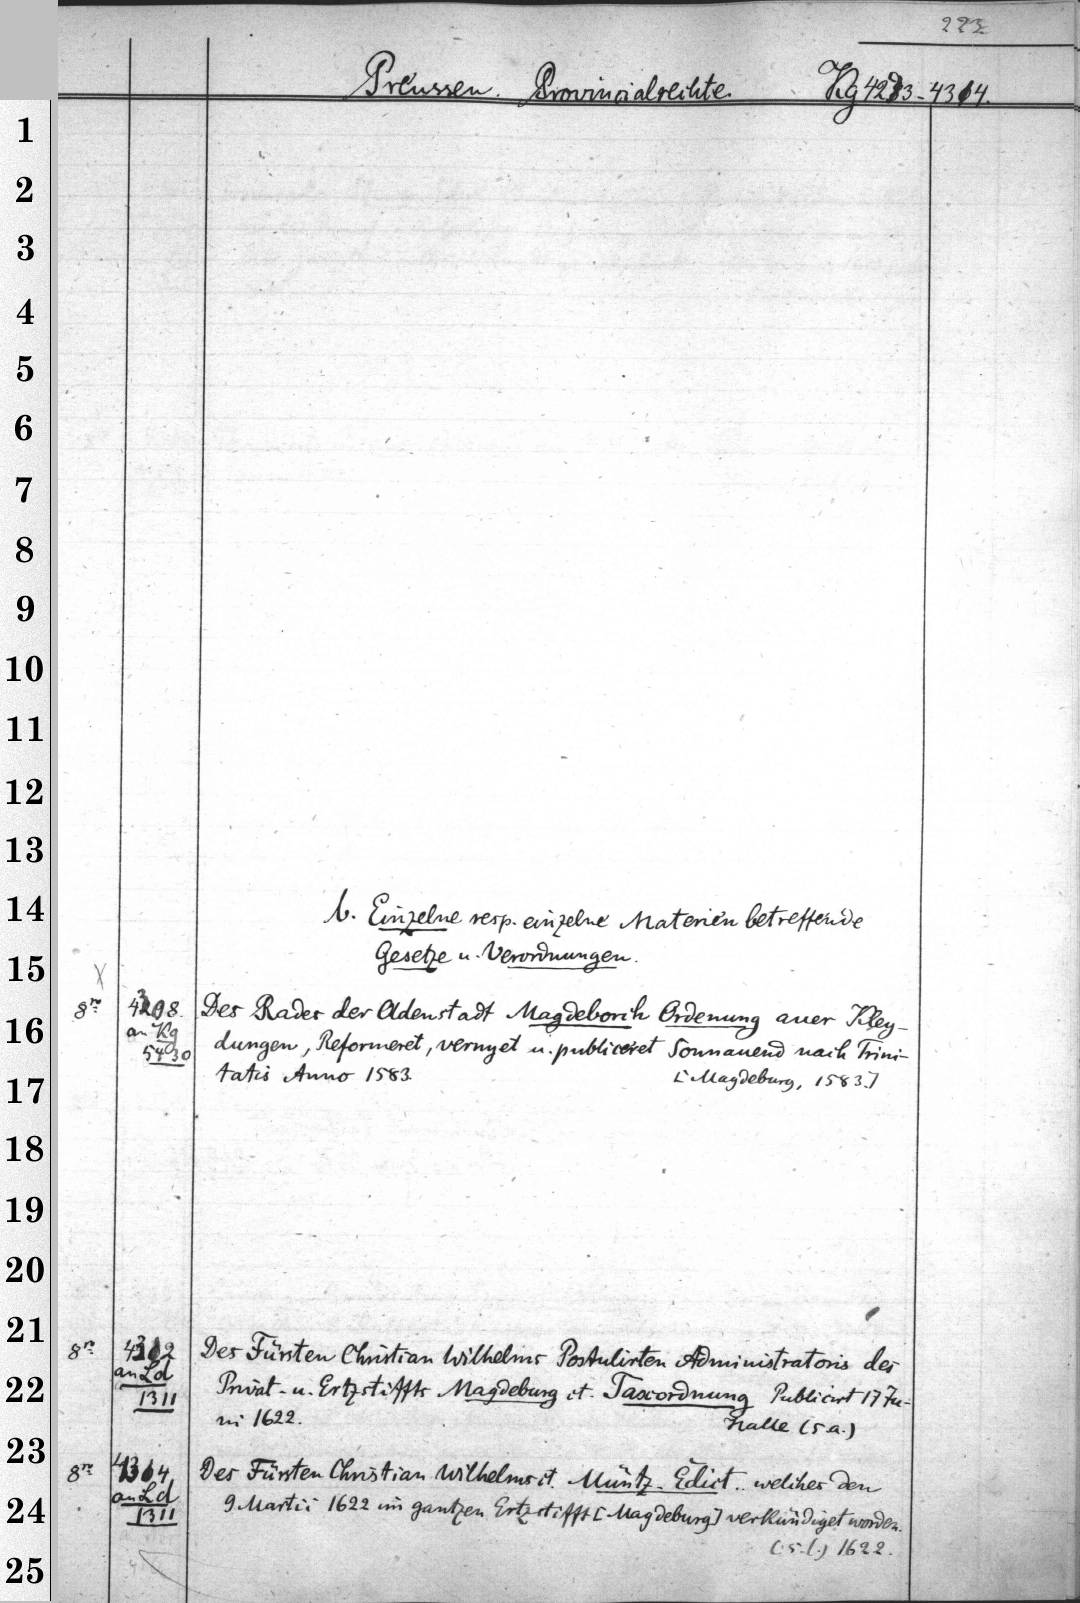 223
Preussen. Provincialrechte. Kg 4283-4314.
1
2
3
4
5
6
7
8
9
10
11
12
13
14
15
16
17
18
19
20
21
22
23
24
25
b. Einzelne resp. einzelne Materien betreffende
Gesetze u. Verordnungen.
8vo 4308. Des Rades der Oldenstadt Magdeborch Ordenung auer Kley-
an Kg dungen, Reformeret, vernyet u. publiceret Sonnauend nach Trini-
5430 tatis Anno 1583. [Magdeburg, 1583.]
8vo 4312 Des Fürsten Christian Wilhelms Postulirten Administratoris des
an Ld Primat- u. Ertzstiffts Magdeburg et. Taxordnung Publicirt 17 Ju-
1311 ni 1622. Halle (s. a.)
8vo 4314 Des Fürsten Christian Wilhelms et. Müntz-Edict .. welches den
an Ld 9 Martii 1622 im gantzen Ertzstifft [Magdeburg] verkündiget worden.
1311 (s. l.) 1622.